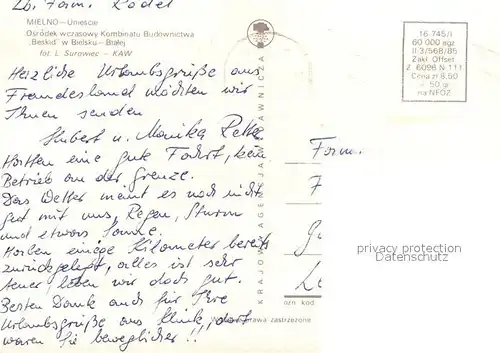 Lb. Fam. Rödel
MIELNO – Unieście
Ośrodek wczasowy Kombinatu Budownictwa
„Beskid" w Bielsku-Białej
fot. L. Surowiec – KAW
16-745/I
60 000 egz
II-3/568/85
Zakł. Offset
Z. 6098 N-111
Cena zł 8,50
+ 50 gr
na NFOZ
Herzliche Urlaubsgrüße aus
Freundesland möchten wir
Ihnen senden
Hubert u. Monika
Hatten eine gute Fahrt, kein
Betrieb an der Grenze.
Das Wetter meint es noch nicht
gut mit uns, Regen, Sturm
und etwas Sonne.
Haben einige Kilometer bereits
zurückgelegt, alles ist sehr
teuer, leben wir doch gut.
Besten Dank auch für Ihre
Urlaubsgrüße aus Klink, dort
waren Sie beweglicher!!
KRAJOWA AGENCJA WYDAWNICZA
Fam.
privacy protection
Datenschutz
kod
zastrzeżone